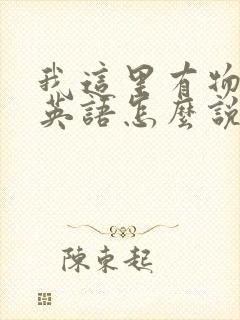 我這里有物
英語怎麼說
陳東起